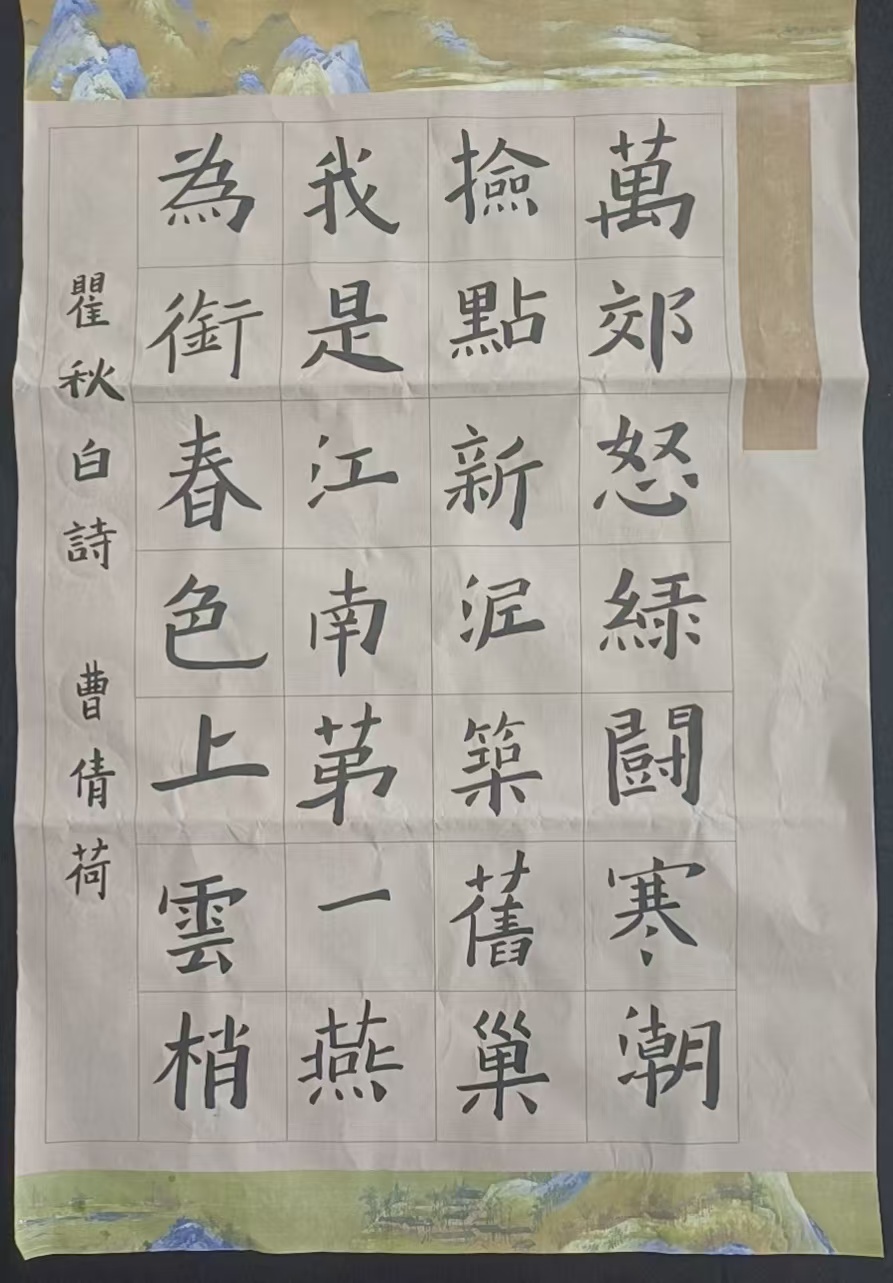 萬郊怒綠鬪寒潮
撿點新泥築舊巢
我是江南第一燕
為銜春色上雲梢
瞿秋白詩 曹倩荷